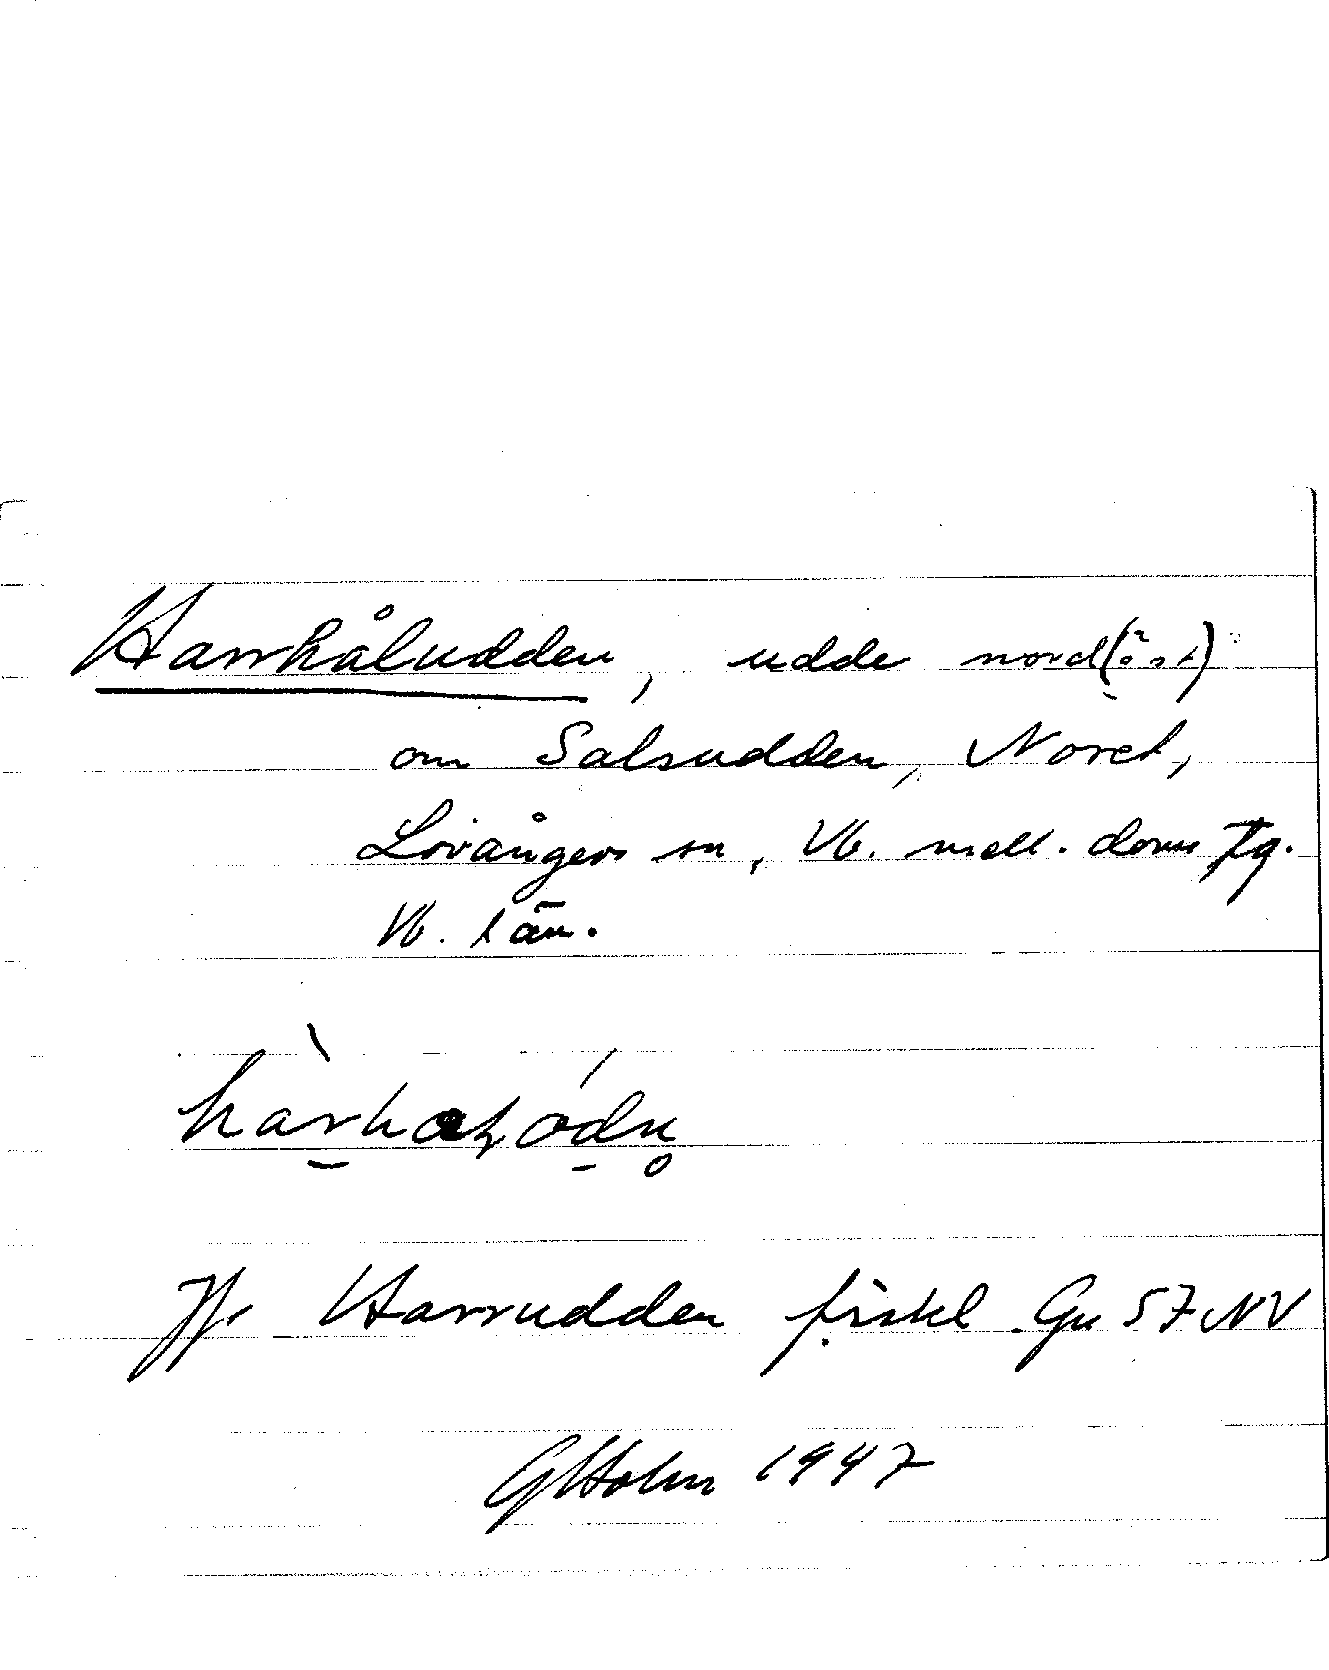 Harrkåludden, udde nord(öst)
om Salsudden, Noret,
Lövångers sn, Vb. mell. doms Tg.
Vb. län.
Jfr Harrudden fiskel Gu 57 NV
GHolm 1947